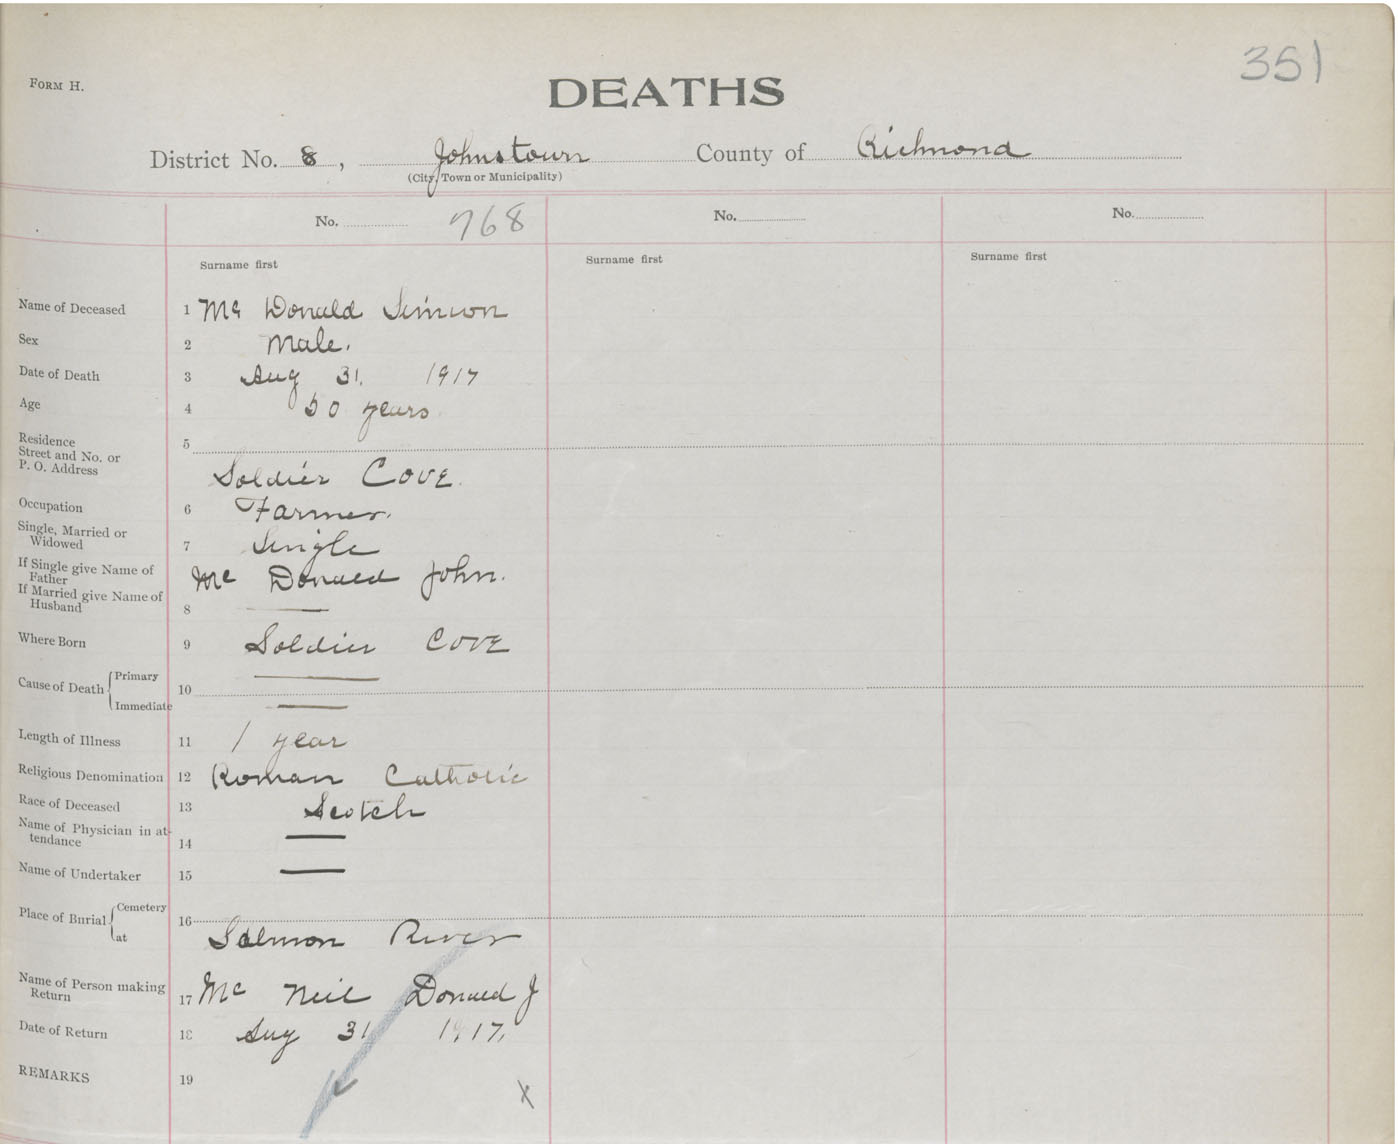 351
FORM H.
DEATHS
District No. 8, Johnstown County of Richmond
(City, Town or Municipality)
No. 768 No. No.
Surname first Surname first Surname first
Name of Deceased 1 Mc Donald Simeon
Sex 2 Male.
Date of Death 3 Aug 31. 1917
Age 4 50 years
Residence 5
Street and No. or
P. O. Address Soldier Cove.
Occupation 6 Farmer.
Single, Married or
Widowed 7 Single
If Single give Name of
Father Mc Donald John.
If Married give Name of
Husband 8 —
Where Born 9 Soldier Cove
Cause of Death Primary —
10
Immediate —
Length of Illness 11 1 year
Religious Denomination 12 Roman Catholic
Race of Deceased 13 Scotch
Name of Physician in at-
tendance 14 —
Name of Undertaker 15 —
Place of Burial Cemetery 16
at Salmon River
Name of Person making
Return 17 Mc Neil Donald J
Date of Return 18 Aug 31 1917.
REMARKS 19
x